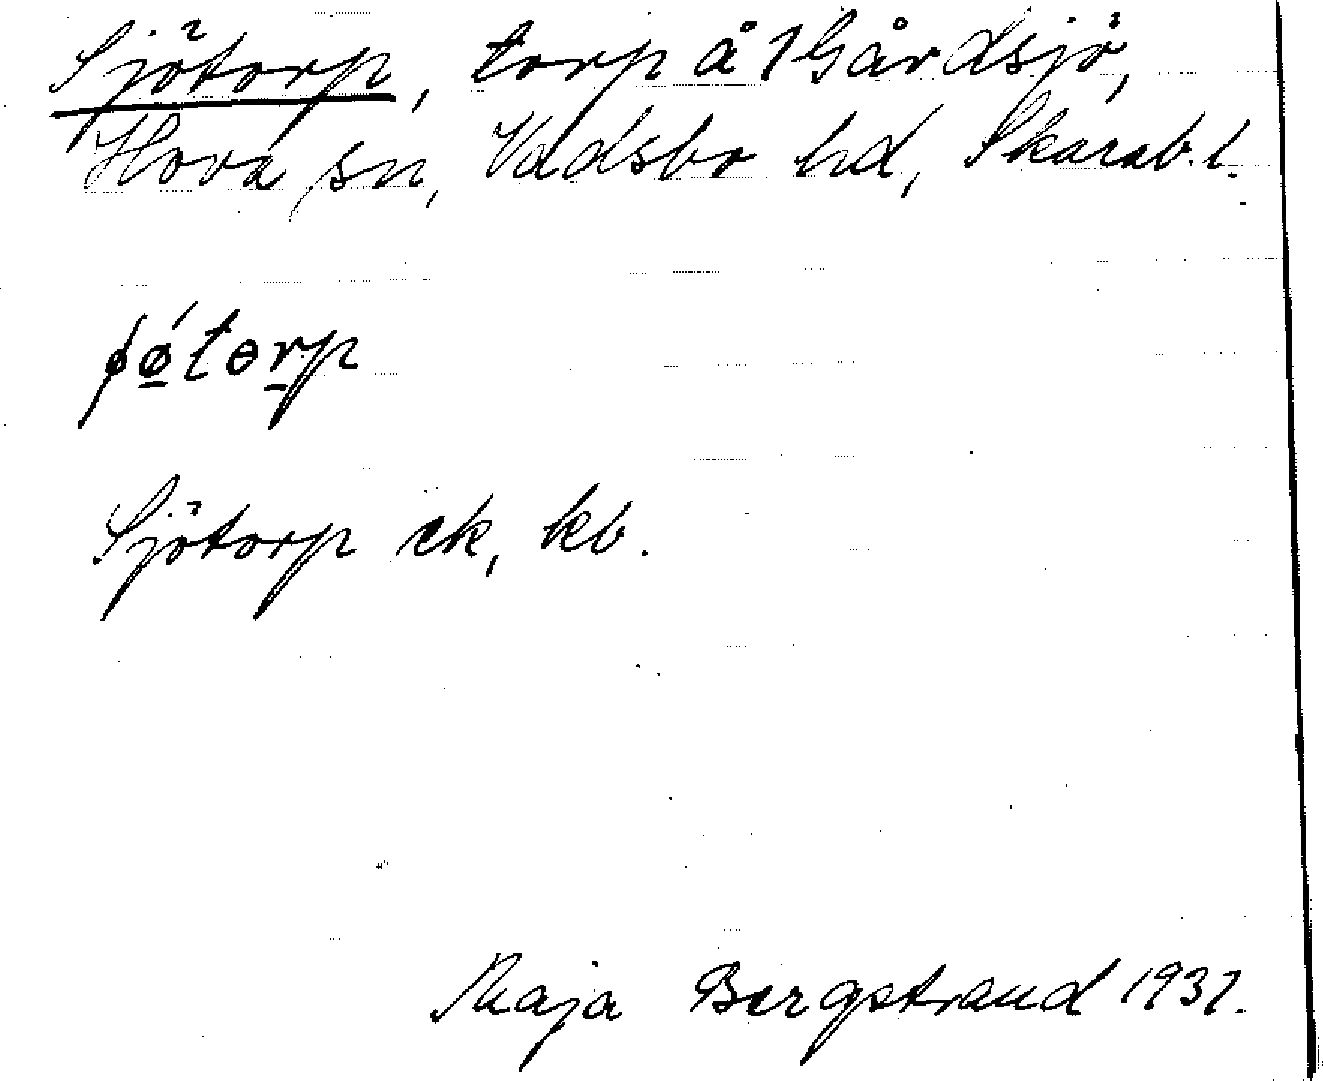 Sjötorp, torp å 1 Gårdsjö,
Hova sn, Vadsbo hd, Skarab. l.
ʃǿ̠tɵr̠p
Sjötorp ek, kb.
Maja Bergstrand 1931.